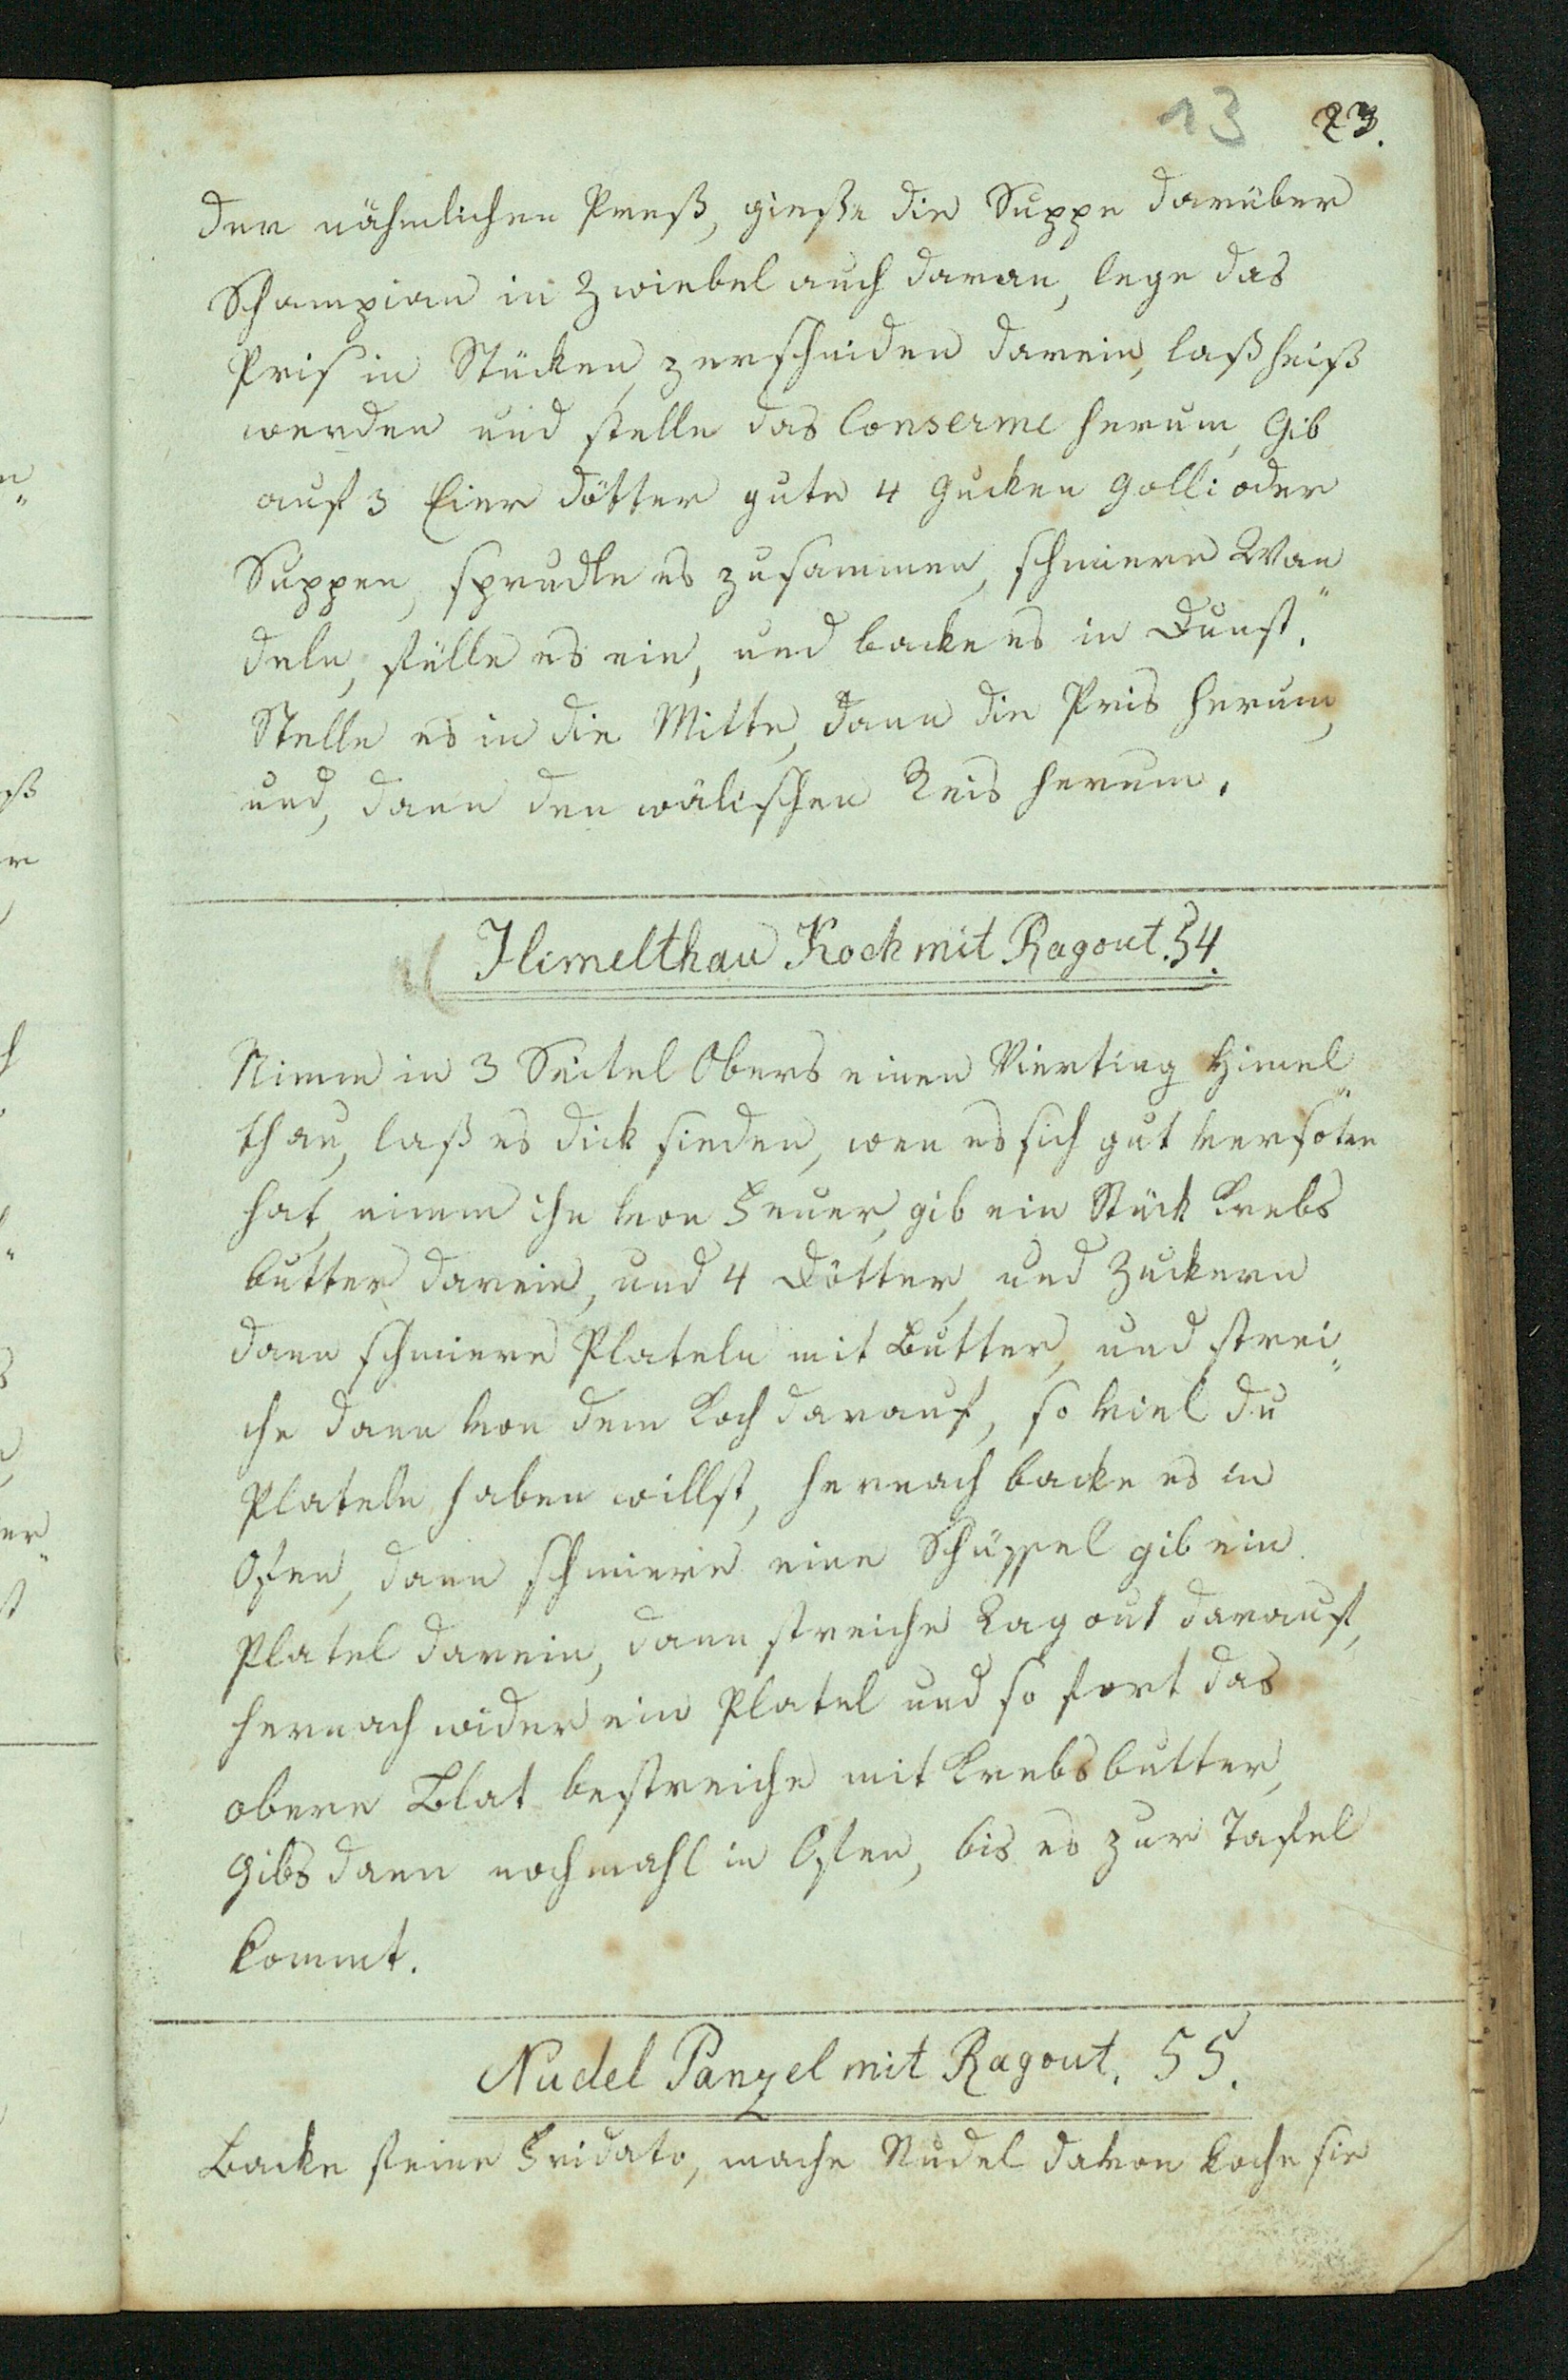 13 23.
der nähmlichen Preß, gieße die Suppe darüber
Schampian in Zwiebel auch daran, lege das
Pris in Stücken, zerschneiden darein, laß heiß
werden und stelle das Conserme herum, Gib
auf 3 Eier dötter gute 4 Gucken Golli oder
Suppen, sprudle es zusammen, schmiere Wan„
deln, fülle es ein, und backe es in Dunst.
Stelle es in die Mitte, dann die Pris herum,
und, dann den wälischen Reis herum.
Himelthau Koch mit Ragout. 54.
Nimm in 3 Seitel Obers einen Vierting Himel„
thau, laß es dick sieden, wen es sich gut versoten
hat, nimm ihn von Feuer, gib ein Stück Krebs
butter darein, und 4 Dötter, und Zuckern
dann schmiere Plateln mit Butter, und strei„
che dann von dem Koch darauf, so viel du
Plateln haben willst, hernach backe es in
Ofen, dann schmiere eine Schüssel gib ein
Platel darein, dann streiche Ragout darauf,
hernach wider ein Platel und so fort das
obere Blat bestreiche mit Krebsbutter,
Gibs dann nochmahl in Ofen, bis es zur Tafel
kommt.
Nudel Panzel mit Ragout. 55.
Backe feine Fridato, mache Nudel davon koche sie